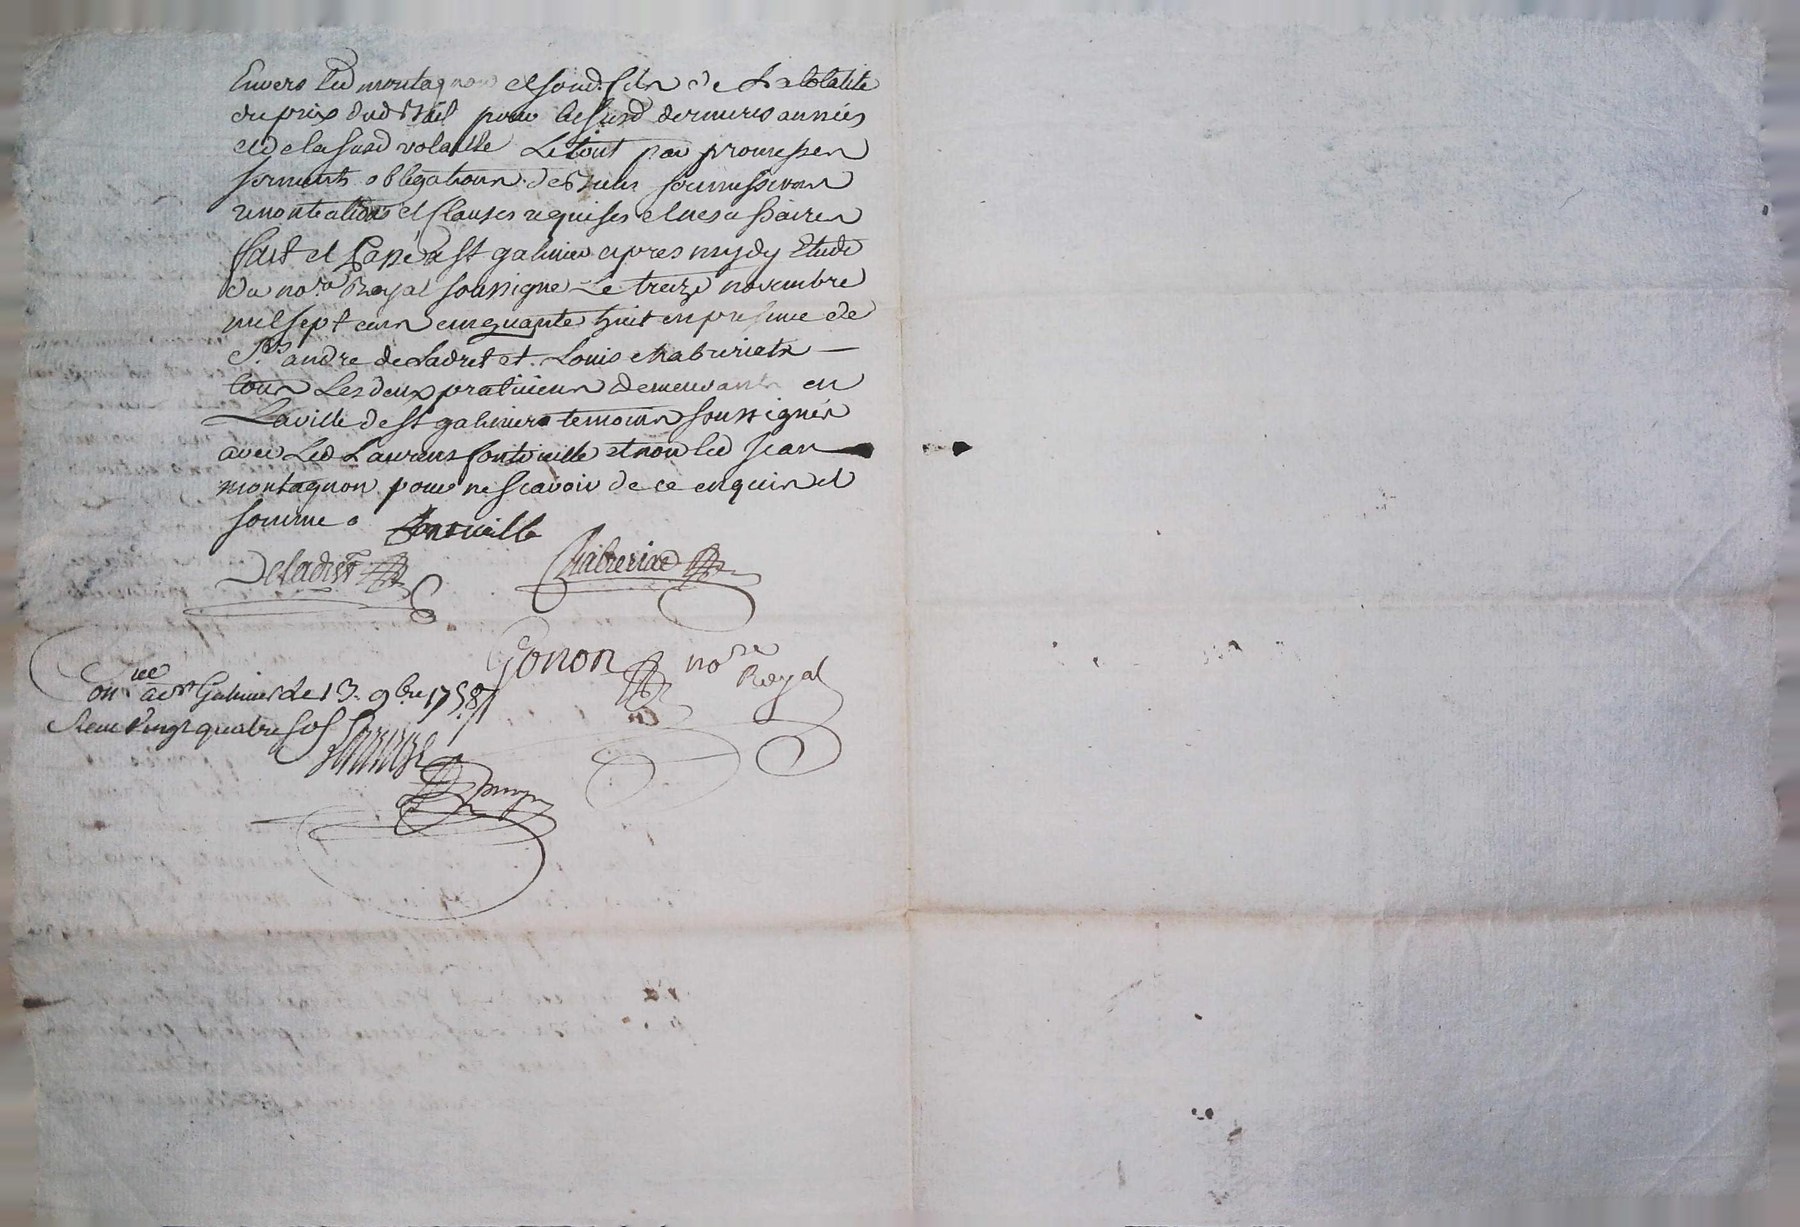 Envers led montagnon et sond. de La totalite
du prix dud Bail pour lesusd dernieres années
et de lasusd volaille Le tout par promesses
serments obligations de Biens soumissions
renontiations et Clauses requises et necessaires
fait et Passé a st galmier apres mydy Etude
du no.re Royal soussigne Le treize novembre
mil sept cens cinquante huit en presence de
S.rs andre deLadret et Louis chabreriath
tous Les deux praticiens demeurants en
Laville de st galmier temoins soussignés
avec Led Laurens fontvieille et non led Jean
montagnon pour ne scavoir de ce enquis et
sommé
Deladret Chabreriad
Gonon no.re
Royal
Con.llé a st Galmier le 13. 9bre 1758
Receu Vingt quatre sols